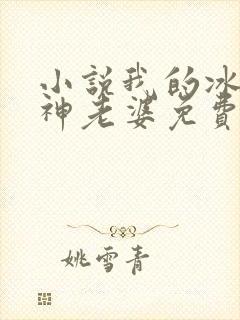 小説我的冰
神老婆免費
姚雪青